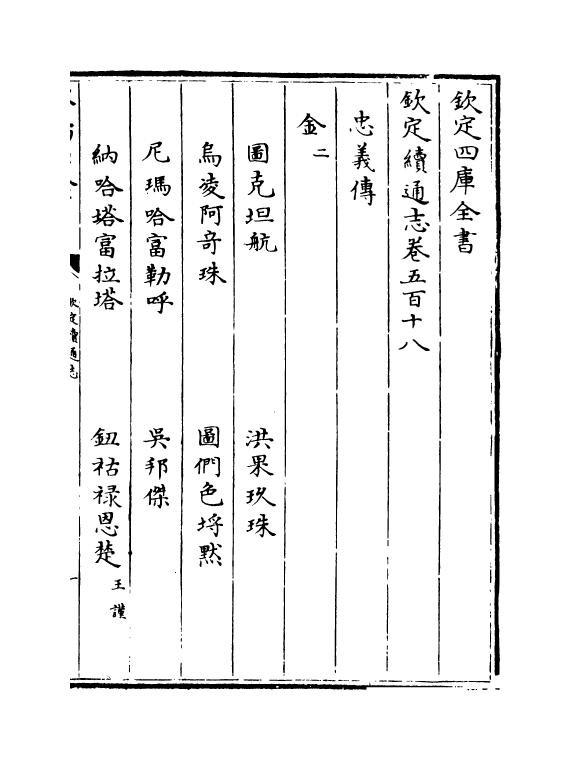 欽定四庫全書
欽定續通志卷五百十八
忠義傳
金二
圖克坦航　洪果玖珠
烏凌阿竒珠　圖們色埒黙
尼瑪哈富勒呼　吳邦傑
納哈塔富拉塔　鈕祜禄恩楚 王謙
欽定續通志
一